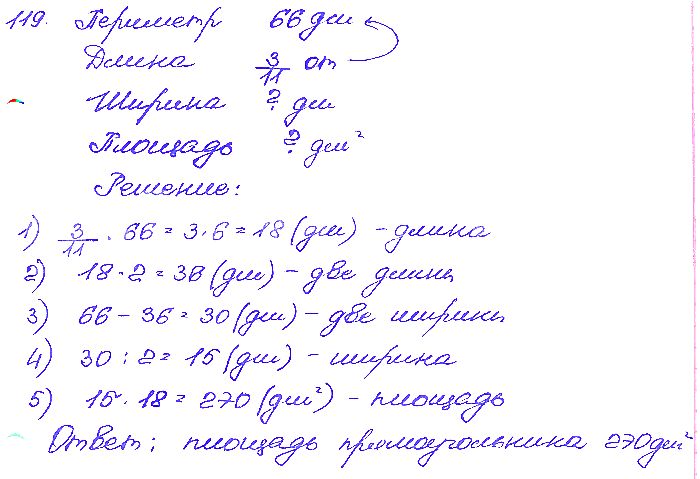 119. Периметр 66 дм
Длина 3/11 от
Ширина ? дм
Площадь ? дм²
Решение:
1) 3/11 · 66 = 3·6 = 18 (дм) - длина
2) 18·2 = 36 (дм) - две длины
3) 66 - 36 = 30 (дм) - две ширины
4) 30 : 2 = 15 (дм) - ширина
5) 15 · 18 = 270 (дм²) - площадь
Ответ: площадь прямоугольника 270 дм²